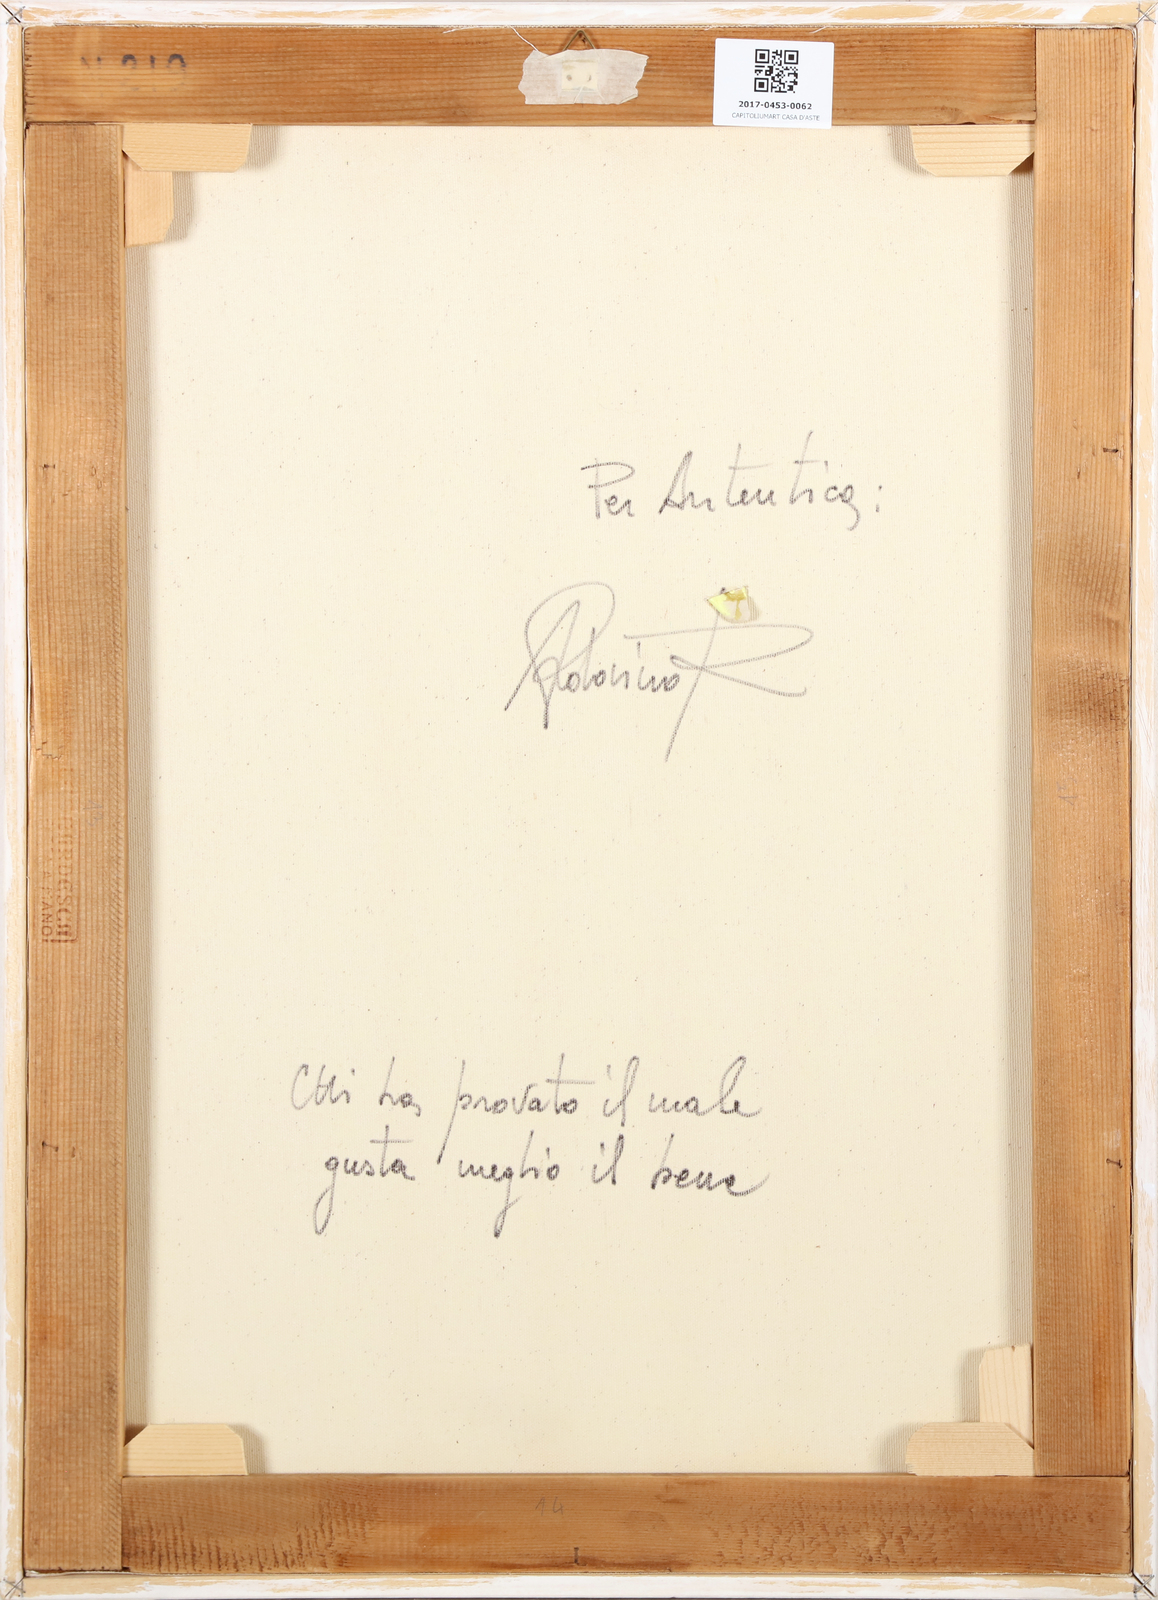 2017-0453-0062
CAPITOLIUMART CASA D'ASTE
Per Autentica:
Chi ha provato il male
gusta meglio il bene
14